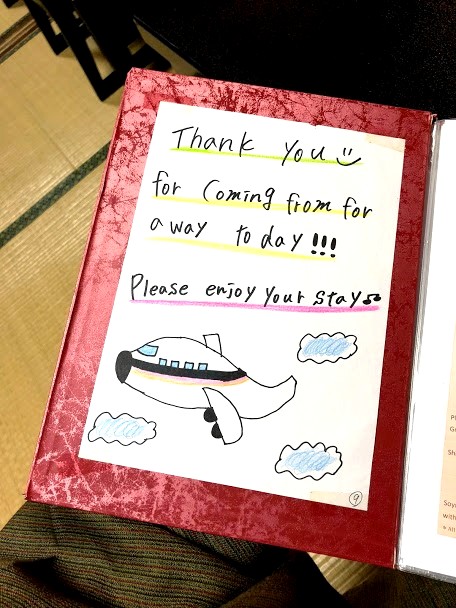 Thank you
for coming from for
away today !!!
Please enjoy your stay♫
9